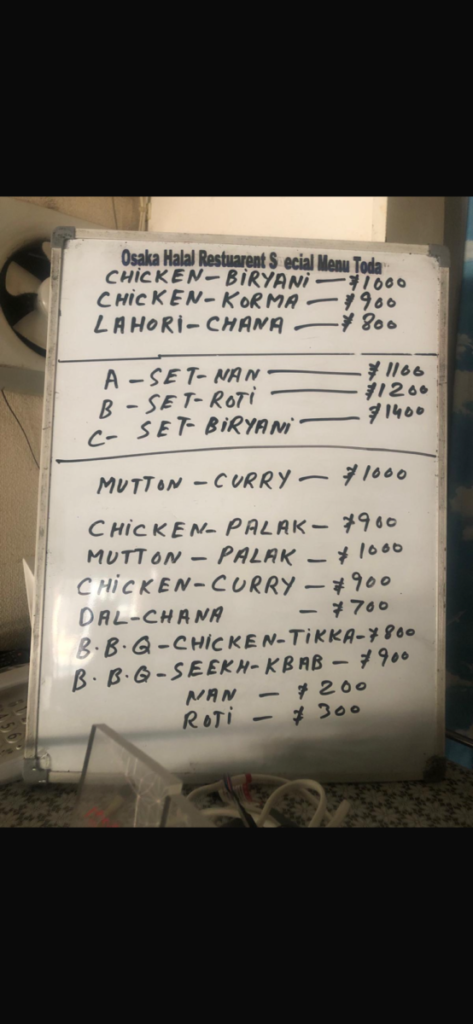 Osaka Halal Restuarent S ecial Menu Toda
CHICKEN-BIRYANI — ¥1000
CHICKEN-KORMA — ¥900
LAHORI-CHANA — ¥800
A-SET-NAN — ¥1100
B-SET-ROTI — ¥1200
C-SET-BIRYANI — ¥1400
MUTTON-CURRY — ¥1000
CHICKEN-PALAK — ¥900
MUTTON-PALAK — ¥1000
CHICKEN-CURRY — ¥900
DAL-CHANA — ¥700
B.B.Q-CHICKEN-TIKKA-¥800
B.B.Q-SEEKH-KBAB — ¥900
NAN — ¥200
ROTI — ¥300